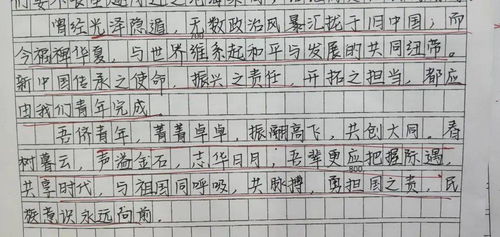 曾经光泽隐遁，无数政治风暴汇拢于旧中国；而
今福禅华夏，与世界维系起和平与发展的共同纽带。
新中国传承之使命，振兴之责任，开拓之担当，都应
由我们青年完成。
吾侪青年，菁菁卓卓，振翮高飞，共创大同。看
树暮云，声溢金石，志华日月；吾辈更应把握际遇，
800
共享时代，与祖国同呼吸，共脉搏，勇担国之责，民
族意识永远向前。